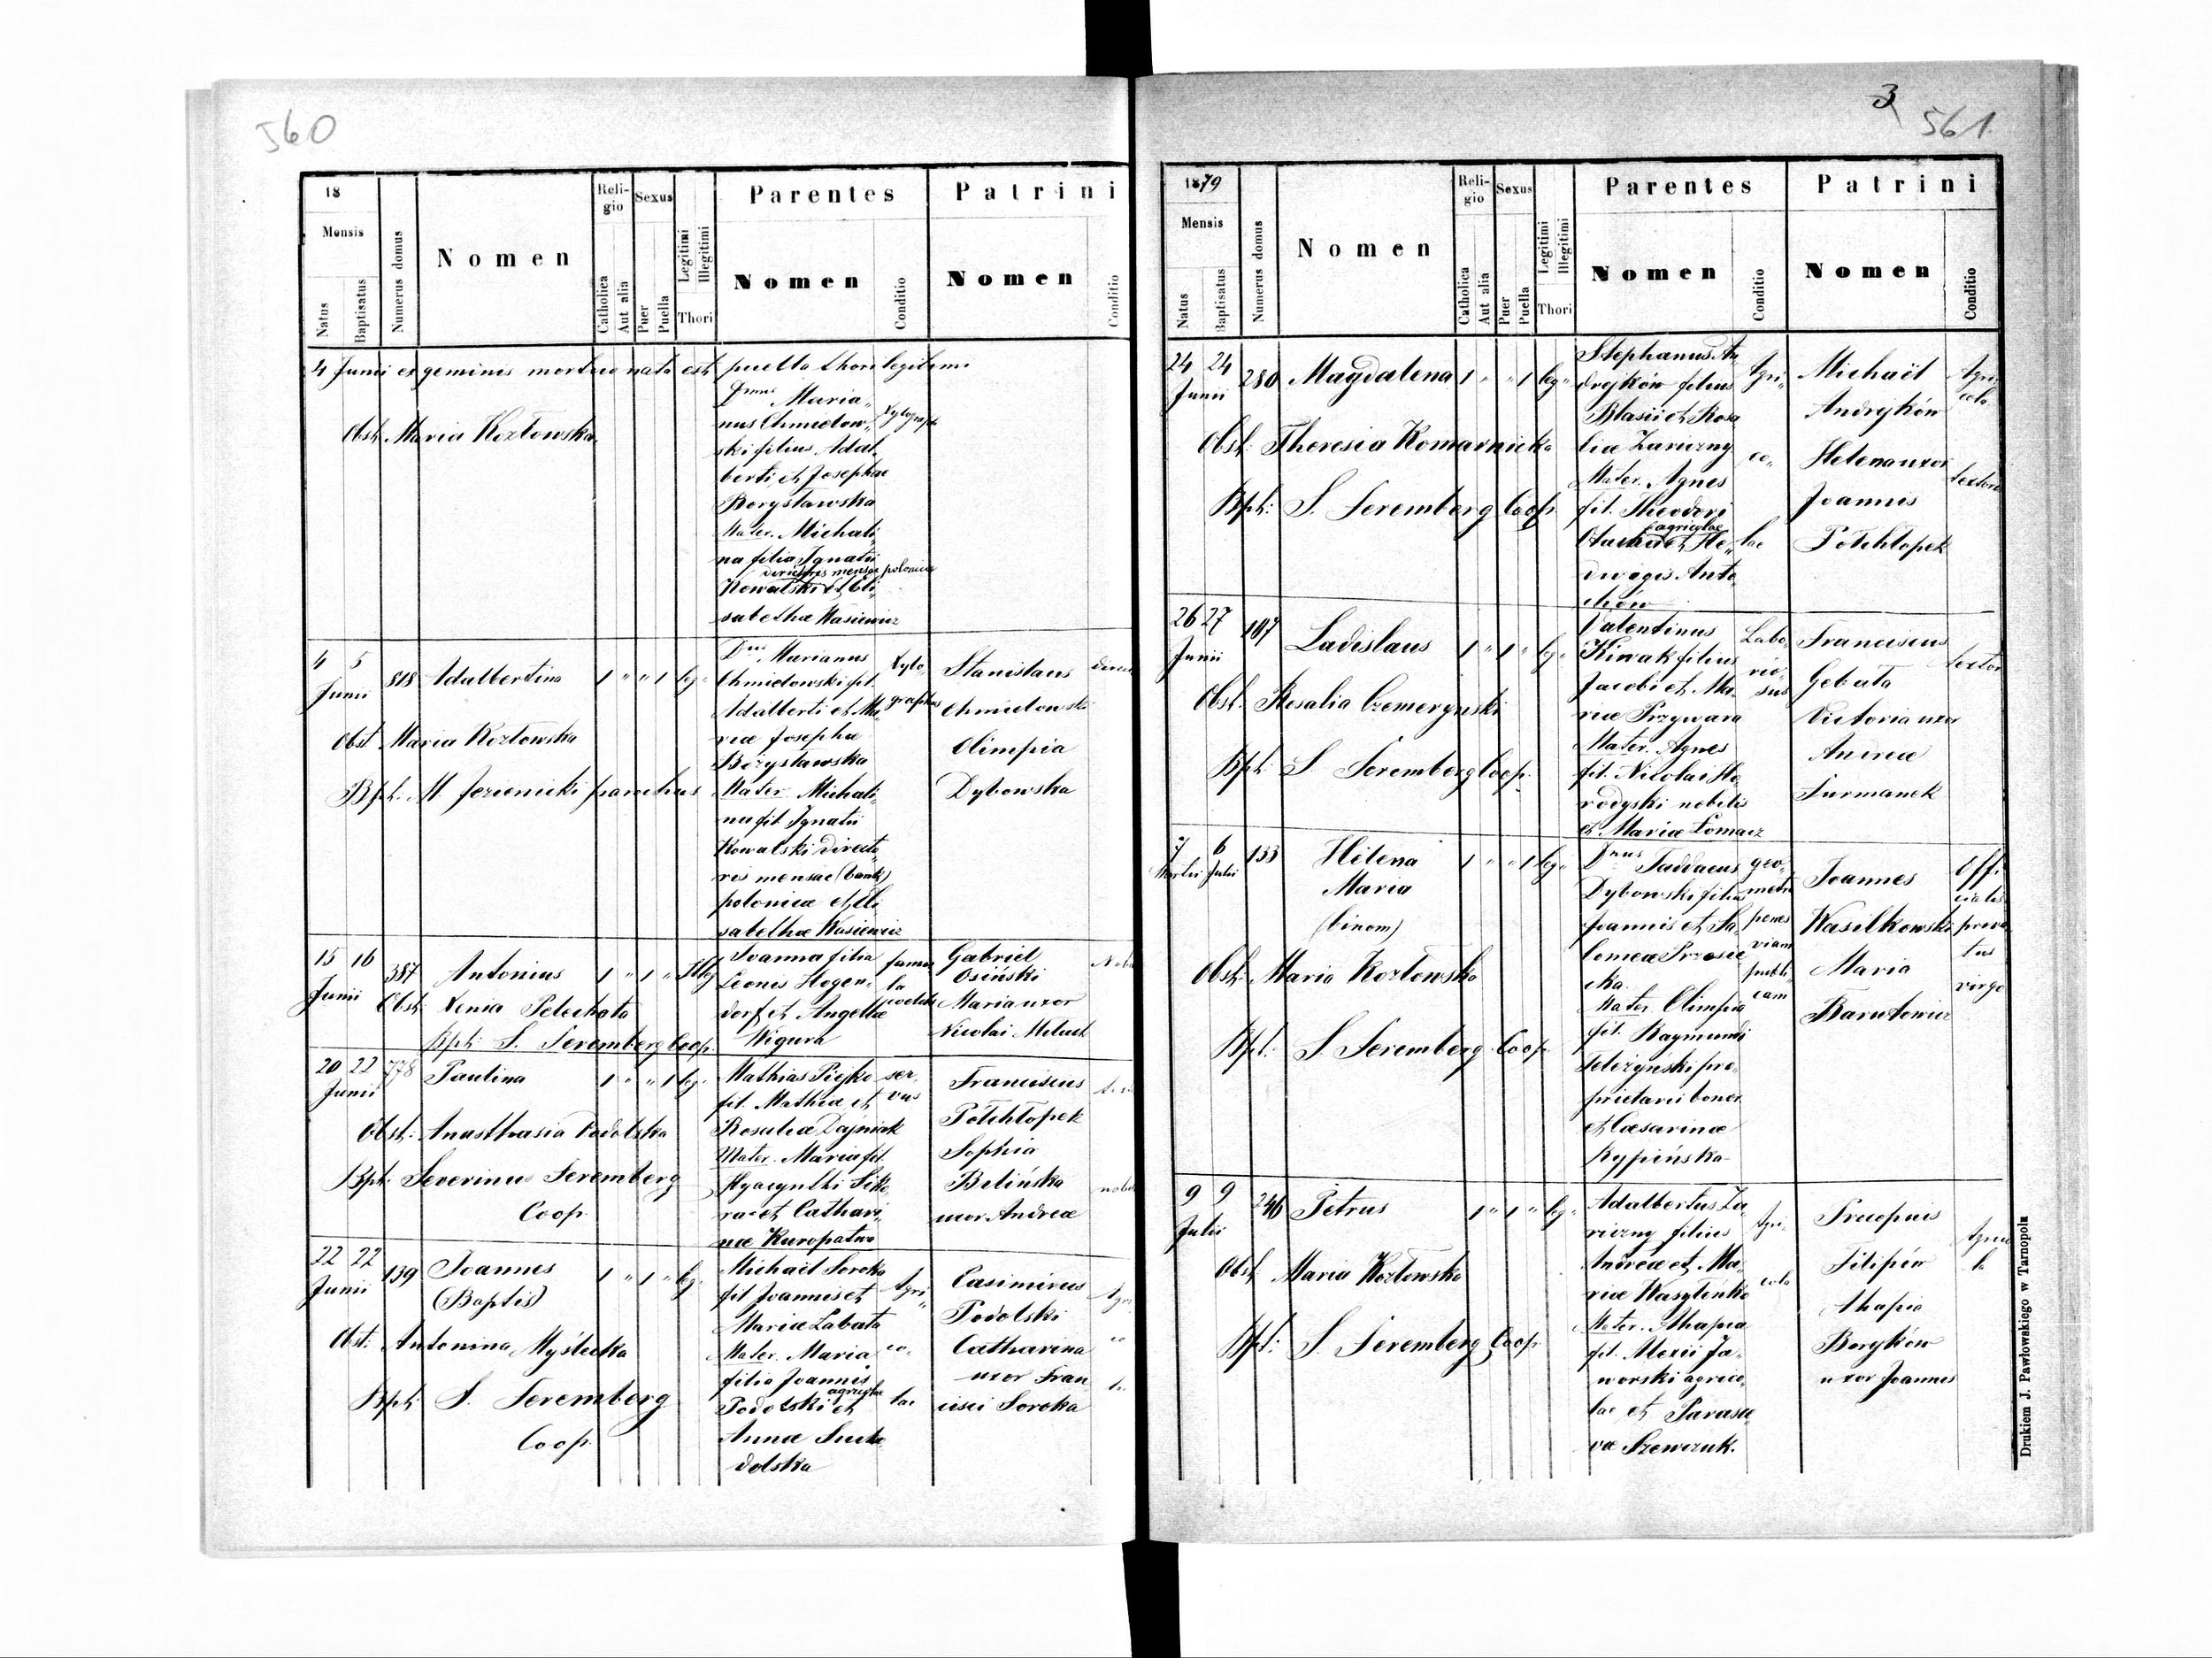 560
18
Mensis
Natus
Baptisatus
Numerus domus
Nomen
Religio
Catholica
Aut alia
Sexus
Puer
Puella
Legitimi
Illegitimi
Thori
Parentes
Nomen
Conditio
Patrini
Nomen
Conditio
4 Junii ex geminis mortuo nata est puella thori legitimi
Obst. Maria Kozłowska
Dnus Maria,,
nus Chmielow,,
ski filius Adal,,
berti et Josephae
Borysławska
Mater. Michali,,
na filia Ignatii
directoris mensae polonicae
Kowalski et Eli,,
sabethae Wasiewicz
Xylograph
4 5
Junii
818 Adalbertina 1 " " 1 leg.
Obst Maria Kozłowska
Bph. M Jezienicki parochus
Dnus Marianus
Chmielowski fil.
Adalberti et Ma,,
riae Josephae
Borysławska
Mater Michali,,
na fil Ignatii
Kowalski directo,,
ris mensae (bank)
polonicae et Eli
sabethae Wasiewicz
Xylo,,
graphus
Stanislaus
Chmielowski
Olimpia
Dybowska
15 16
Junii
387 Antonius 1 " 1 " Illeg
Obst: Xenia Pelechata
Bph: S. Seremberg Coop.
Joanna filia
Leonis Hogen,,
dorf et Angellae
Wigura
famu
la
Gabriel
Osiński
Maria uxor
Nicolai Meluch
20 22
Junii
778 Paulina 1 " " 1 leg.
Obst: Anasthasia Podolska
Bph. Severinus Seremberg
Coop.
Mathias Piejko
fil. Mathiae et
Rosaliae Dajniak
Mater. Maria fil.
Hyacynthi Siko,,
rae et Cathari,,
nae Kuropatwa
ser,,
vus
Franciscus
Półchłopek
Sophia
Belińska
uxor Andreae
22 22
Junii
139 Joannes 1 " 1 " leg.
(Baptis)
Obst: Antonina Myślicka
Bph: S. Seremberg
Coop.
Michael Soroka
fil Joannis et
Mariae Labata
Mater. Maria
filia Joannis
agricolae
Podolski et
Annae Sucho
dolska
Agri,,
co,,
lae
Casimirus
Podolski
Catharina
uxor Fran
cisci Soroka
3
561
1879
Mensis
Natus
Baptisatus
Numerus domus
Nomen
Religio
Catholica
Aut alia
Sexus
Puer
Puella
Legitimi
Illegitimi
Thori
Parentes
Nomen
Conditio
Patrini
Nomen
Conditio
24 24
Junii
280 Magdalena 1 " " 1 leg.
Obst: Theresia Komarnicka
Bph: S. Seremberg Coop.
Stephanus An
drejków filius
Blasii et Rosa
liae Zariczny
Mater. Agnes
fil. Theodori
agricolae
et He,,
dwigis Anto
chów
Agri,,
co,,
lae
Michaël
Andrejków
Helena uxor
Joannis
Półchłopek
Agri
cola
textoris
26 27
Junii
107 Ladislaus 1 " 1 " leg.
Obst. Rosalia Czemeryński
Bph: S. Seremberg Coop.
Valentinus
Kiwak filius
Jacobi et Ma,,
riae Przywara
Mater. Agnes
fil. Nicolai Ho
rodyski nobilis
et Mariae Łomacz
Labo,,
rio,,
sus
Franciscus
Gebata
Victoria uxor
Andreae
Furmanek
textor
7 6
Martii Julii
133 Helena 1 " " 1 leg.
Maria
(binom)
Obst: Maria Kozłowska
Bpt: S. Seremberg Coop
Dnus Taddaeus
Dybowski filius
Joannis et Sa,,
lomeae Przesie
cka
Mater. Olimpia
fil. Raymundi
pro,,
prietarii bonor.
et Caesarinae
Rypińska
geo,,
metra
penes
viam
publi
cam
Joannes
Wasilkowski
Maria
Barutowicz
Offi
cialis
priva
tus
virgo
9 9
Julii
246 Petrus 1 " 1 " leg.
Obst Maria Kozłowska
Bpt: S. Seremberg Coop.
Adalbertus Za,,
riczny filius
Andreae et Ma,,
riae Wasyleńko
Mater. Ahapia
fil. Alexii Ja,,
worski agrico,,
lae et Parasce
vae Szewczuk.
Agri,,
cola
Procopius
Filipów
Ahapia
Boryków
uxor Joannis
Agrico
la
Drukiem J. Pawłowskiego w Tarnopolu